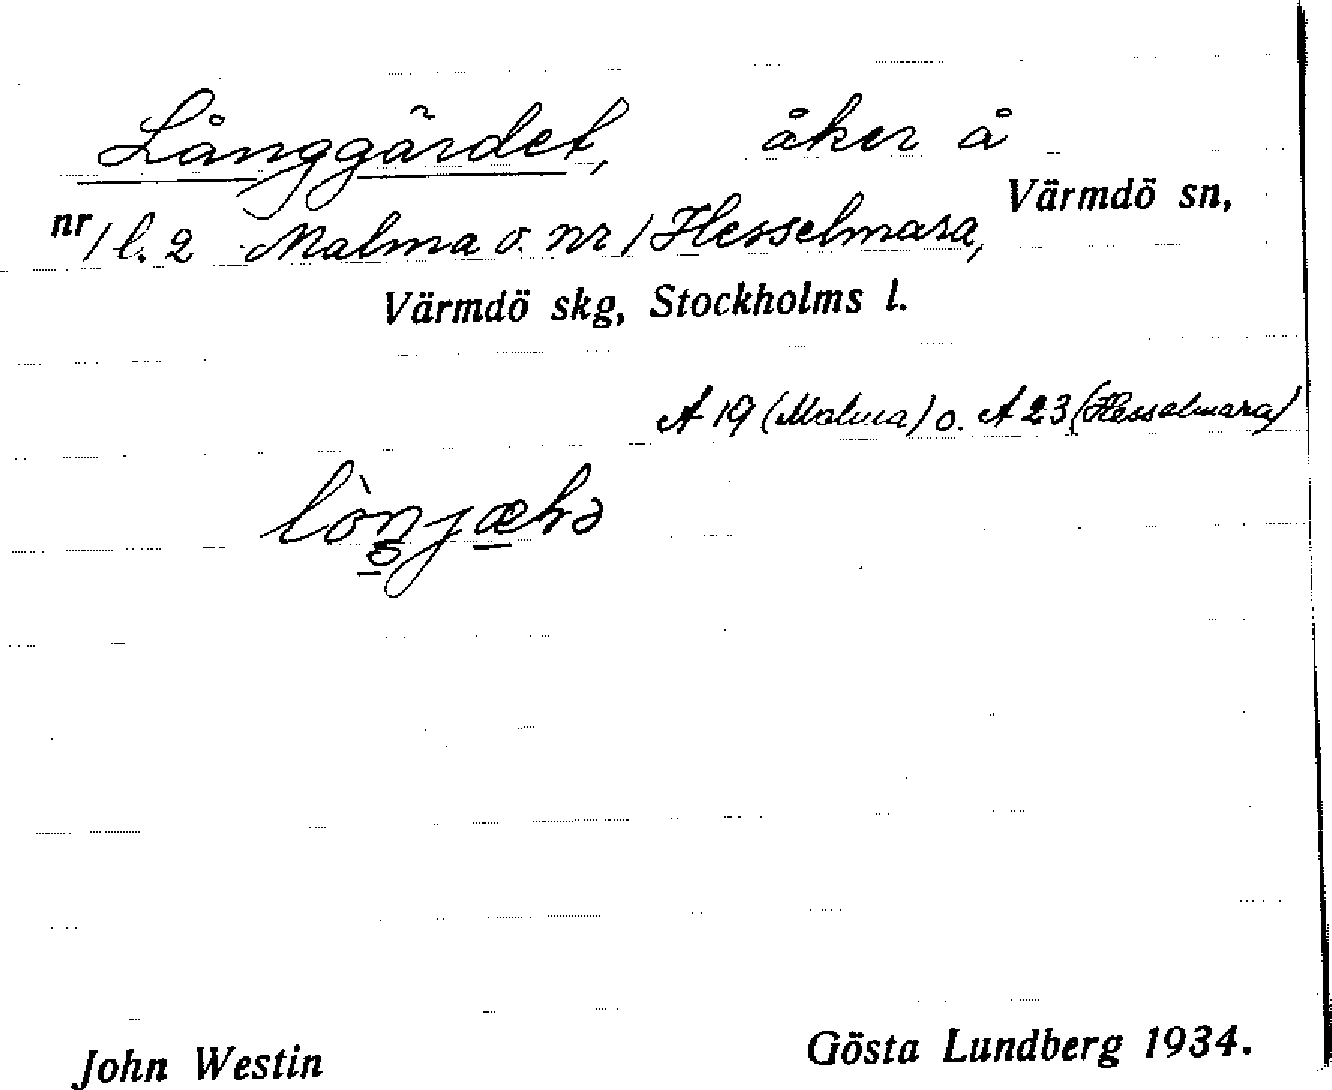 Långgärdet, åker å
nr 1 l. 2 Malma o. nr 1 Hesselmara, Värmdö sn,
Värmdö skg, Stockholms l.
A 19 (Malma) o. A 23 (Hesselmara)
John Westin Gösta Lundberg 1934.